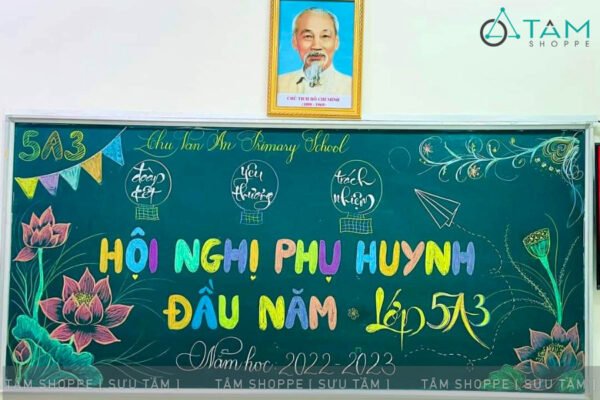 TÂM
SHOPPE
CHỦ TỊCH HỒ CHÍ MINH
(1890 - 1969)
5A3
Chu Van An Primary School
đoàn kết
yêu thương
trách nhiệm
HỘI NGHỊ PHỤ HUYNH
ĐẦU NĂM - Lớp 5A3
Năm học: 2022-2023
TÂM SHOPPE [ SƯU TẦM ] TÂM SHOPPE [ SƯU TẦM ] TÂM SHOPPE [ SƯU TẦM ]